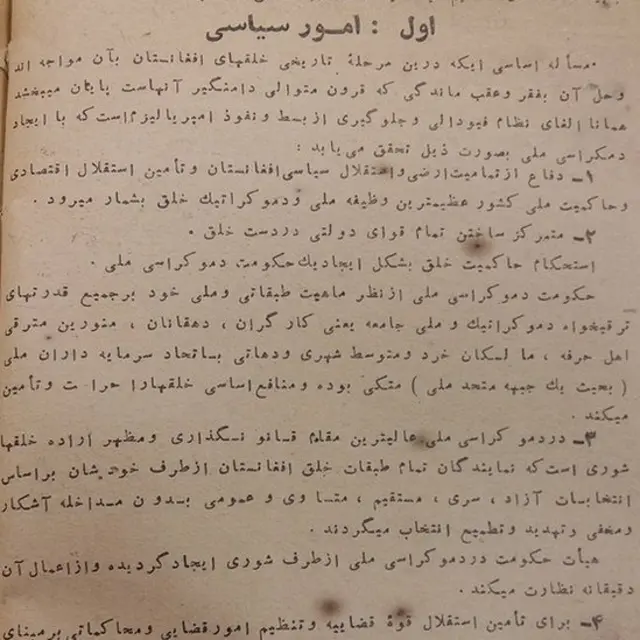 اول : امور سیاسی
مسأله اساسی ایکه درین مرحلهٔ تاریخی خلقهای افغانستان بآن مواجه اند
وحل آن بفقر وعقب ماندگی که قرون متوالی دامنگیر آنهاست پایان میبخشد
همانا الغای نظام فیودالی وجلوگیری از بسط ونفوذ امپریالیزم است که با ایجاد
دمکراسی ملی بصورت ذیل تحقق می یابد :
۱ـ دفاع از تمامیت ارضی واستقلال سیاسی افغانستان وتأمین استقلال اقتصادی
وحاکمیت ملی کشور عظیمترین وظیفه ملی ودموکراتیك خلق بشمار میرود .
۲ـ متمرکز ساختن تمام قوای دولتی دردست خلق .
استحکام حاکمیت خلق بشکل ایجاد یك حکومت دموکراسی ملی .
حکومت دموکراسی ملی از نظر ماهیت طبقاتی وملی خود بر جمیع قدرتهای
ترقیخواه دموکراتیك و ملی جامعه یعنی کارگران ، دهقانان ، منورین مترقی
اهل حرفه ، مالکان خرد ومتوسط شهری ودهاتی باتحاد سرمایه داران ملی
( بحیث یك جبهه متحد ملی ) متکی بوده ومنافع اساسی خلقهارا حراست وتأمین
میکند .
۳ـ دردموکراسی ملی عالیترین مقام قانونگذاری ومظهر اراده خلقها
شوری است که نمایندگان تمام طبقات خلق افغانستان از طرف خودشان براساس
انتخابات آزاد ، سری ، مستقیم ، متساوی و عمومی بدون مداخله آشکار
ومخفی وتهدید وتطمیع انتخاب میگردند .
هیأت حکومت دردموکراسی ملی از طرف شوری ایجاد گردیده واز اعمال آن
دقیقانه نظارت میکند .
۴ـ برای تأمین استقلال قوهٔ قضاییه وتنظیم امور قضایی ومحاکماتی برمبنای